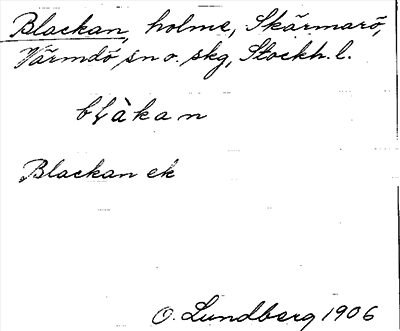 Blackan, holme, Skärmarö,
Värmdö sn o. skg, Stockh. l.
blàkan
Blackan ek
O. Lundberg 1906